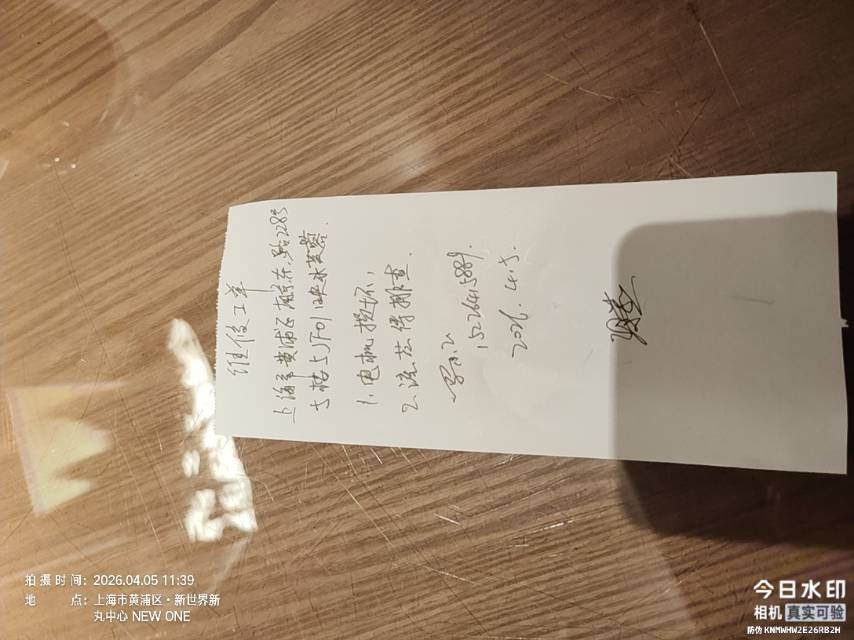 维修工单
上海市黄浦区南京东路228号
5楼5JF01映水芙蓉.
1.电机损坏,
2.流芯得排查.
15226415889.
2026.4.5.
拍摄时间: 2026.04.05 11:39
地 点: 上海市黄浦区·新世界新
丸中心 NEW ONE
今日水印
相机 真实可验
防伪 KNMWHW2E26RB2H